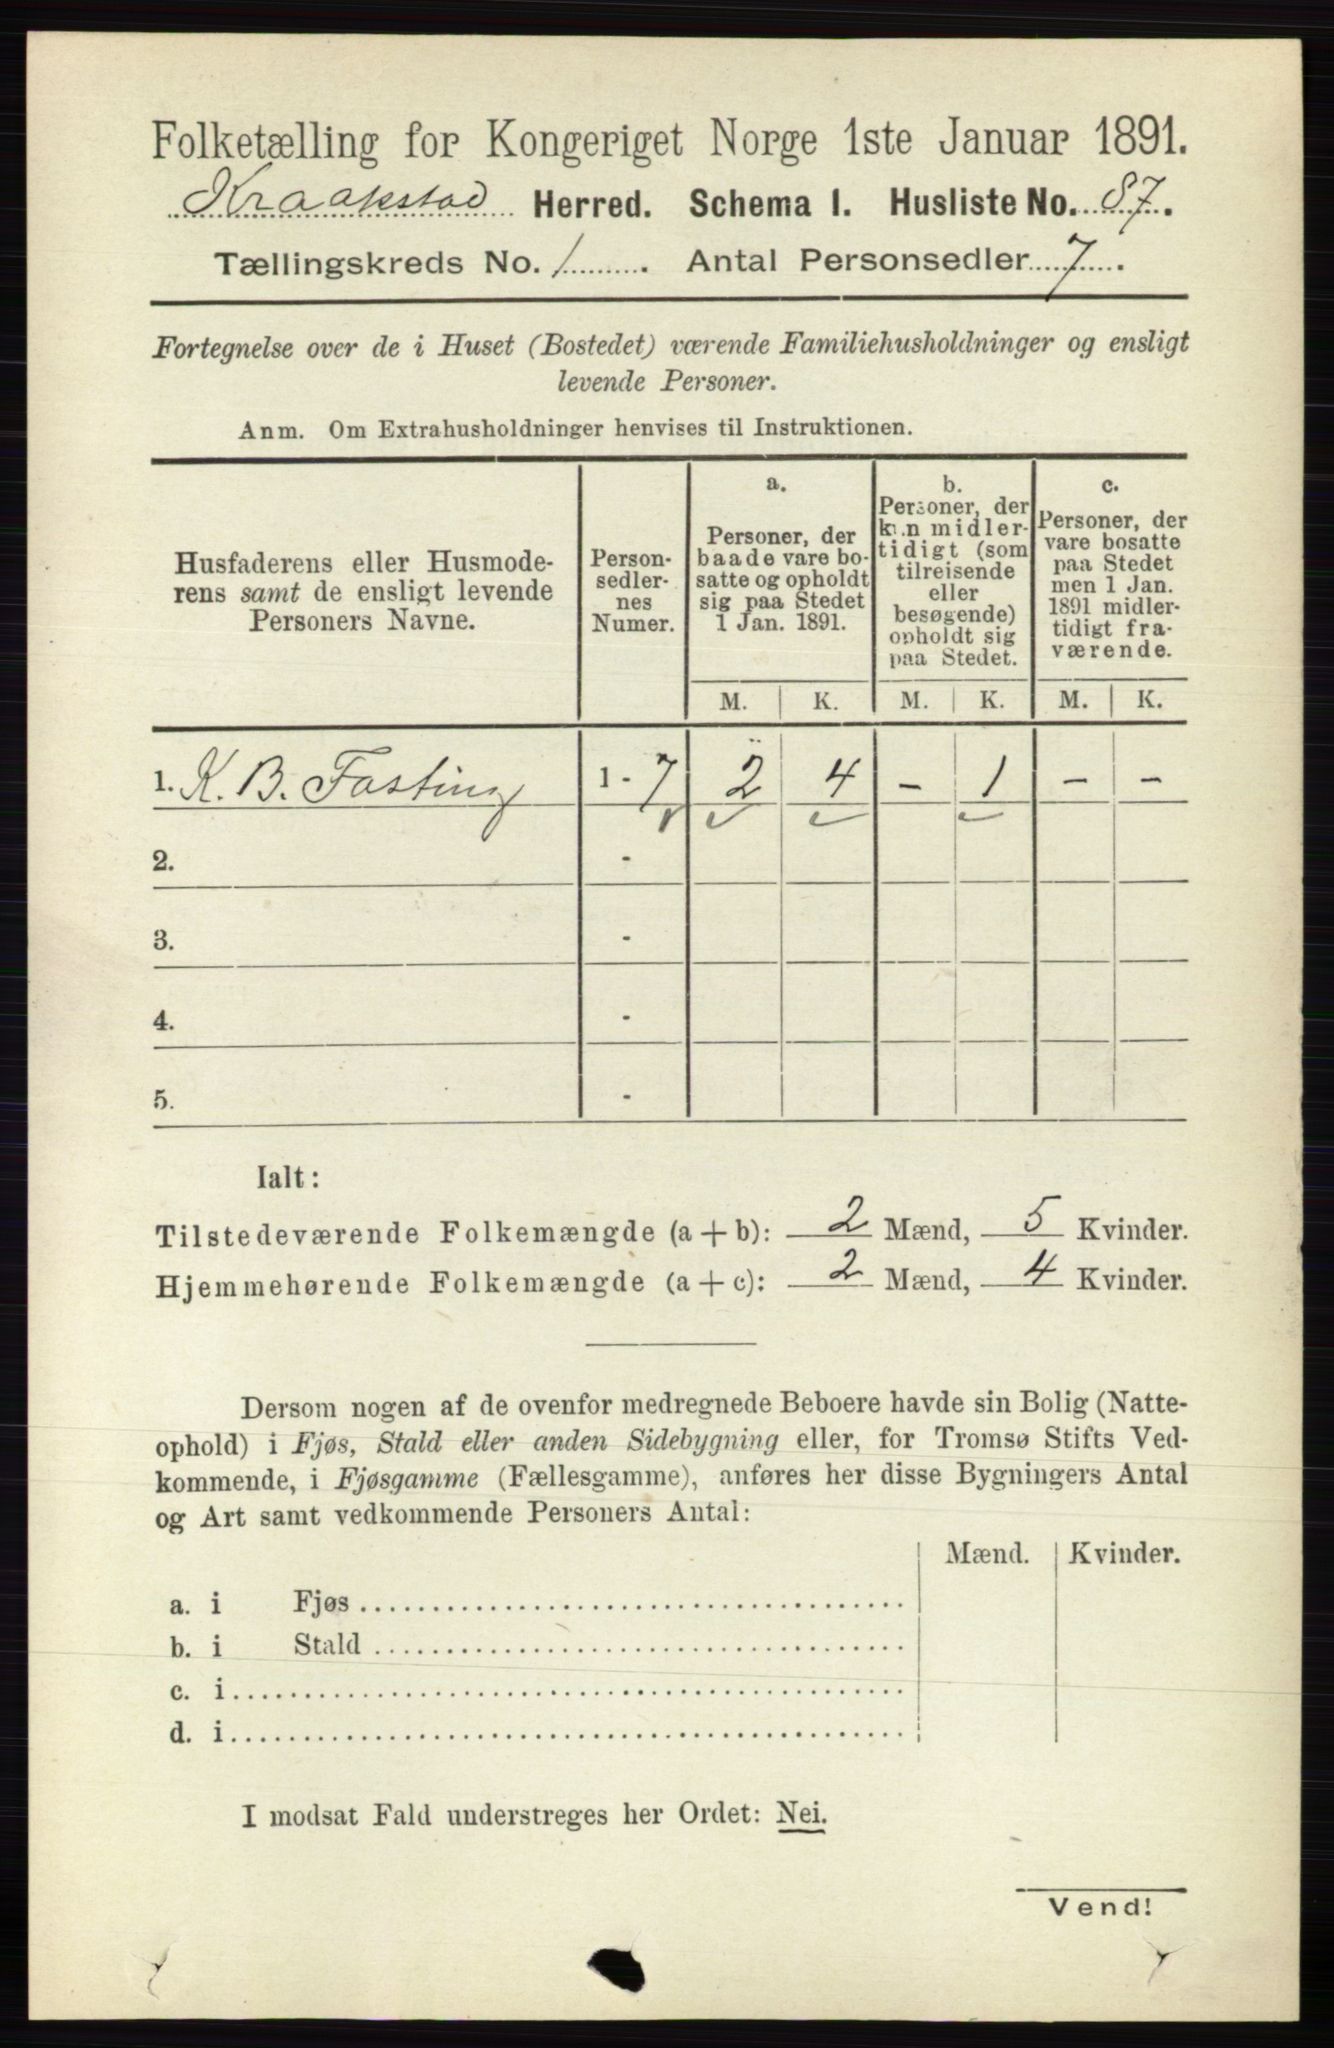 Folketælling for Kongeriget Norge 1ste Januar 1891.
Kraakstad Herred. Schema I. Husliste No. 87.
Tællingskreds No. 1. Antal Personsedler 7.
Fortegnelse over de i Huset (Bostedet) værende Familiehusholdninger og ensligt
levende Personer.
Anm. Om Extrahusholdninger henvises til Instruktionen.
Husfaderens eller Husmode-
rens samt de ensligt levende
Personers Navne.
Person-
sedler-
nes
Numer.
a.
Personer, der
baade vare bo-
satte og opholdt
sig paa Stedet
1 Jan. 1891.
b.
Personer, der
kun midler-
tidigt (som
tilreisende
eller
besøgende)
opholdt sig
paa Stedet.
c.
Personer, der
vare bosatte
paa Stedet
men 1 Jan.
1891 midler-
tidigt fra-
værende.
M. K. M. K. M. K.
1. K. B. Fasting 1 - 7 2 4 - 1 - -
2. -
3. -
4. -
5. -
Ialt:
Tilstedeværende Folkemængde (a + b): 2 Mænd, 5 Kvinder.
Hjemmehørende Folkemængde (a + c): 2 Mænd, 4 Kvinder.
Dersom nogen af de ovenfor medregnede Beboere havde sin Bolig (Natte-
ophold) i Fjøs, Stald eller anden Sidebygning eller, for Tromsø Stifts Ved-
kommende, i Fjøsgamme (Fællesgamme), anføres her disse Bygningers Antal
og Art samt vedkommende Personers Antal:
Mænd. Kvinder.
a. i Fjøs
b. i Stald
c. i
d. i
I modsat Fald understreges her Ordet: Nei.
Vend!